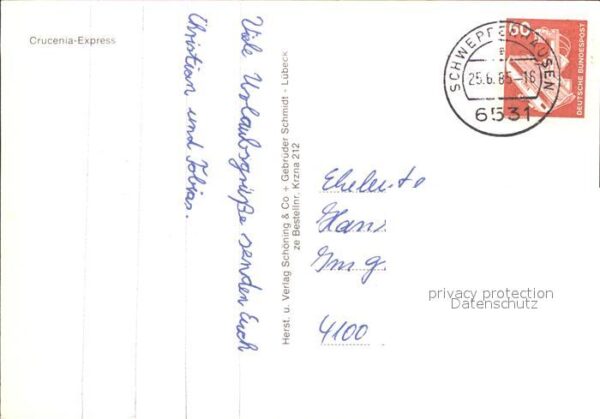 Crucenia-Express
Viele Urlaubsgrüße senden Euch
Christian und Tobias.
Herst. u. Verlag Schöning & Co + Gebrüder Schmidt - Lübeck
ze Bestellnr. Krzna 212
60
DEUTSCHE BUNDESPOST
SCHWEPPENHAUSEN
25.6.85-16
6531
Eheleute
Hans
Ing.
4100
privacy protection
Datenschutz